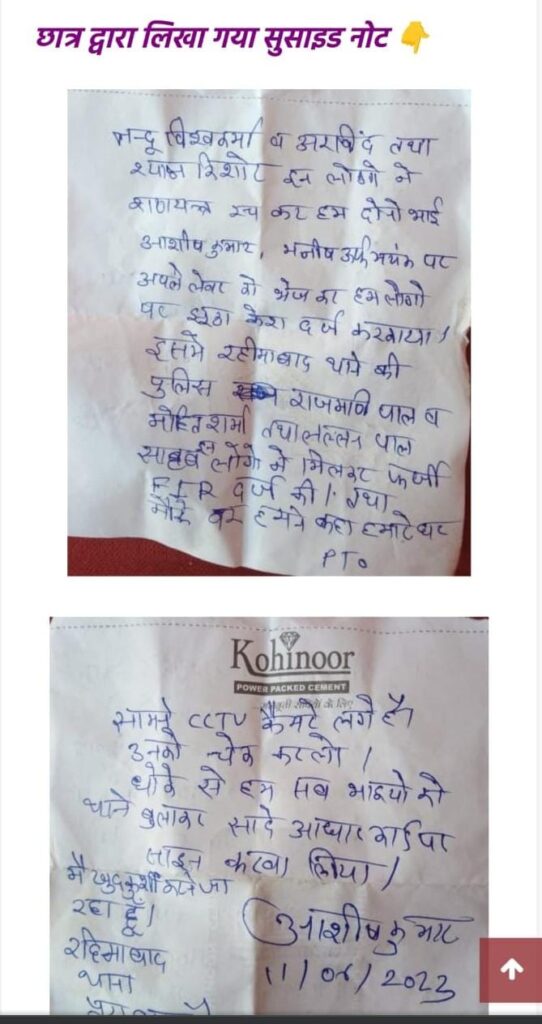 छात्र द्वारा लिखा गया सुसाइड नोट 👇
नन्दू विश्वकर्मा व अरविंद तथा
श्याम किशोर इन लोगो ने
शणयन्त्र रच कर हम दोनो भाई
आशीष कुमार, मनीष उर्फ मयंक पर
अपने लेवर को भेज कर हम लोगो
पर झूठा केश दर्ज करवाया।
इसमे रहीमाबाद थाने की
पुलिस राजमणि पाल व
मोहित शर्मा तथा लल्लन पाल
साहब इन लोगो ने मिलकर फर्जी
FIR दर्ज की। तथा
मौके पर हमने कहा हमारे घर
PTO
Kohinoor
POWER PACKED CEMENT
सामने CCTV कैमरे लगे है।
उनको चेक करलो।
धोके से हम सब भाइयो को
थाने बुलाकर सादे आधार कार्ड पर
साइन करवा लिया।
मै खुदकुशी करने जा
रहा हूँ।
आशीष कुमार
11/06/2023
रहिमाबाद
थाना